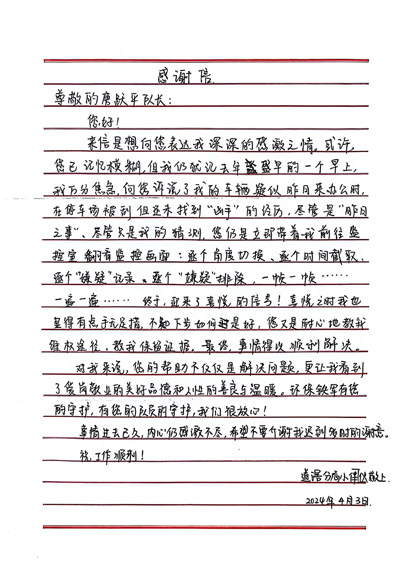 感谢信
尊敬的唐跃平队长:
您好!
来信是想向您表达我深深的感激之情。或许,
您已记忆模糊,但我仍然记去年盛夏早的一个早上,
我万分焦急,向您诉说了我的车辆疑似昨日来办公时,
在停车场被刮但并未找到"凶手"的经历,尽管是"昨日
之事"、尽管只是我的猜测,您仍是立即带着我前往监
控室翻看监控画面:逐个角度切换、逐个时间截取、
逐个"嫌疑"记录、逐个"嫌疑"排除,一帧一帧……
一遍一遍……终于,迎来了喜悦的信号!喜悦之时我也
显得有点手足无措,不知下步如何是好,您又是耐心地教我
维权途径、教我保留证据。最终,事情得以顺利解决。
对我来说,您的帮助不仅仅是解决问题,更让我看到
了爱岗敬业的美好品德和人性的善良与温暖。环保铁军有您
的守护,有您的负责的守护,我们很放心!
事情过去已久,内心仍感激不尽,希望不要介意我迟到多时的谢意。
祝工作顺利!
分局小
敬上
2024年4月3日